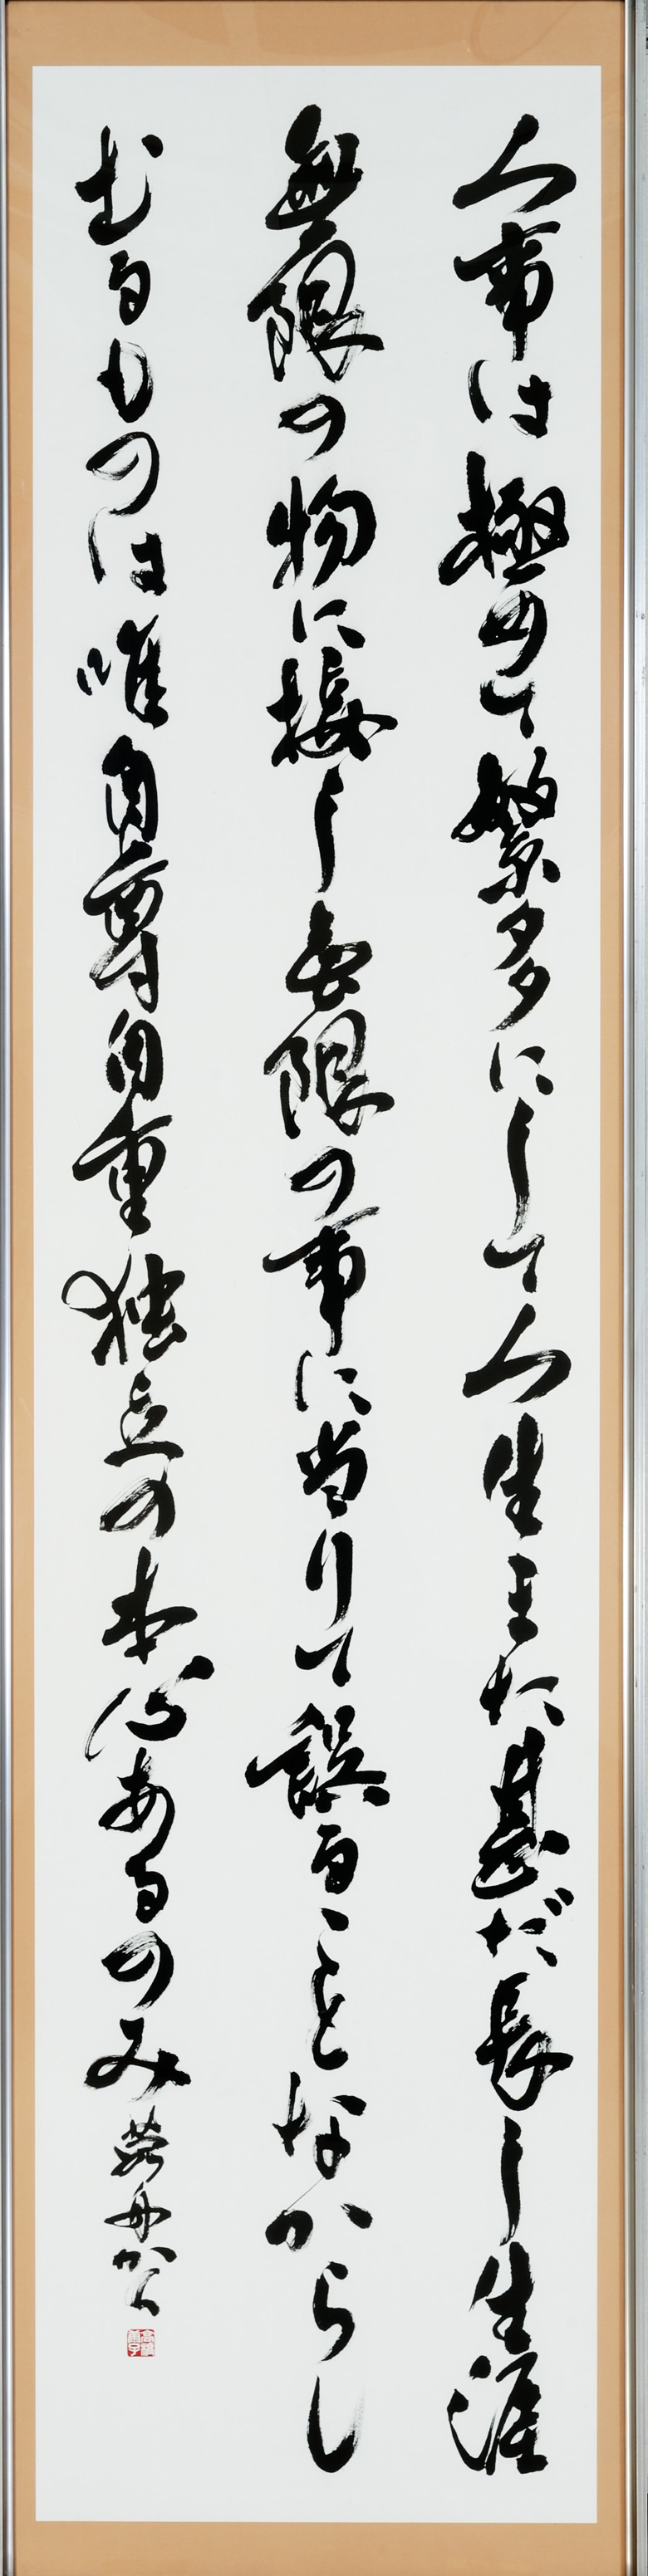 人事は極めて繁多にして人生また甚だ長し生涯
無限の物に接し無限の事に当りて誤ることなからし
むるものは唯自尊自重独立の本心あるのみ